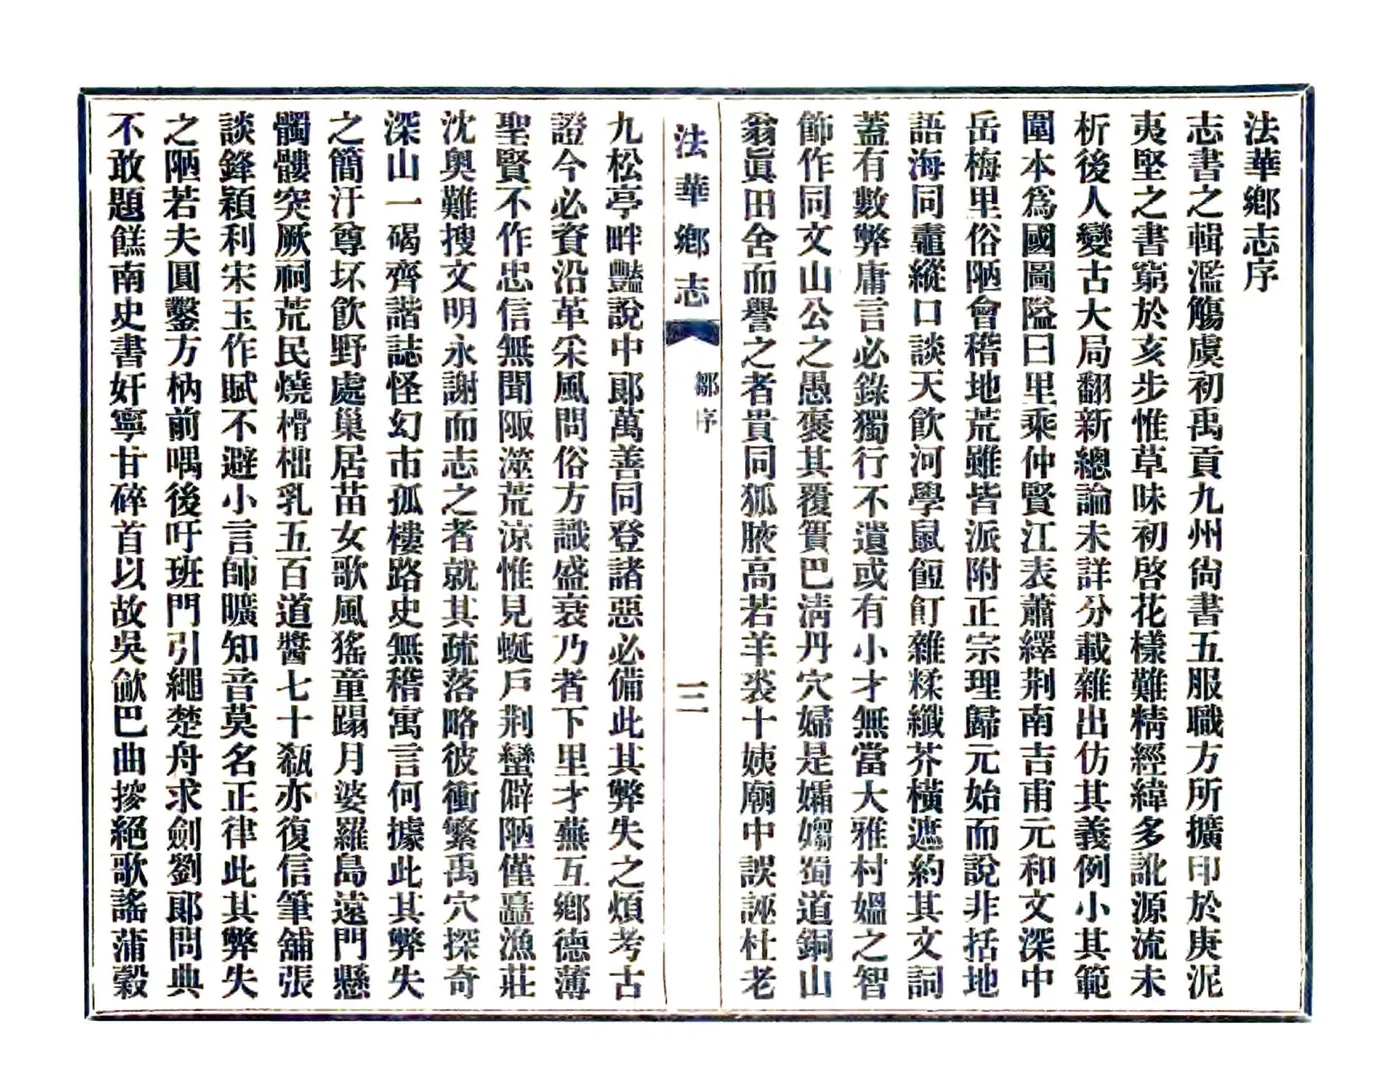 法華鄉志序
志書之輯濫觴虞初禹貢九州尙書五服職方所擴印於庚泥
夷堅之書窮於亥步惟草昧初啓花樣難精經緯多訛源流未
析後人變古大局翻新總論未詳分載雜出仿其義例小其範
圍本爲國圖隘曰里乘仲賢江表蕭繹荆南吉甫元和文深中
岳梅里俗陋會稽地荒雖皆派附正宗理歸元始而說非括地
語海同鼃縱口談天飲河學鼠餖飣雜糅纖芥橫遮約其文詞
蓋有數弊庸言必錄獨行不遺或有小才無當大雅村媼之智
節作同文山公之愚褒其覆簣巴淸丹穴婦是孀媰蜀道銅山
翁眞田舍而譽之者貴同狐腋高若羊裘十姨廟中誤誣杜老
法華鄉志
鄒序
三
九松亭畔豔說中郞萬善同登諸惡必備此其弊失之煩考古
證今必資沿革采風問俗方識盛衰乃者下里才蕪互鄉德薄
聖賢不作忠信無聞陬澨荒凉惟見蜒戶荆蠻僻陋僅蠤漁莊
沈奧難搜文明永謝而志之者就其疏落略彼衝繁禹穴探奇
深山一碣齊諧誌怪幻市孤樓路史無稽寓言何據此其弊失
之簡汙尊坏飮野處巢居苗女歌風猺童蹋月婆羅島遠門懸
髑髏突厥祠荒民燒榾柮乳五百道醬七十瓻亦復信筆舖張
談鋒穎利宋玉作賦不避小言師曠知音莫名正律此其弊失
之陋若夫圓鑿方枘前喁後吁班門引繩楚舟求劍劉郞問典
不敢題餻南史書奸寧甘碎首以故吳歈巴曲摎絕歌謠蒲穀